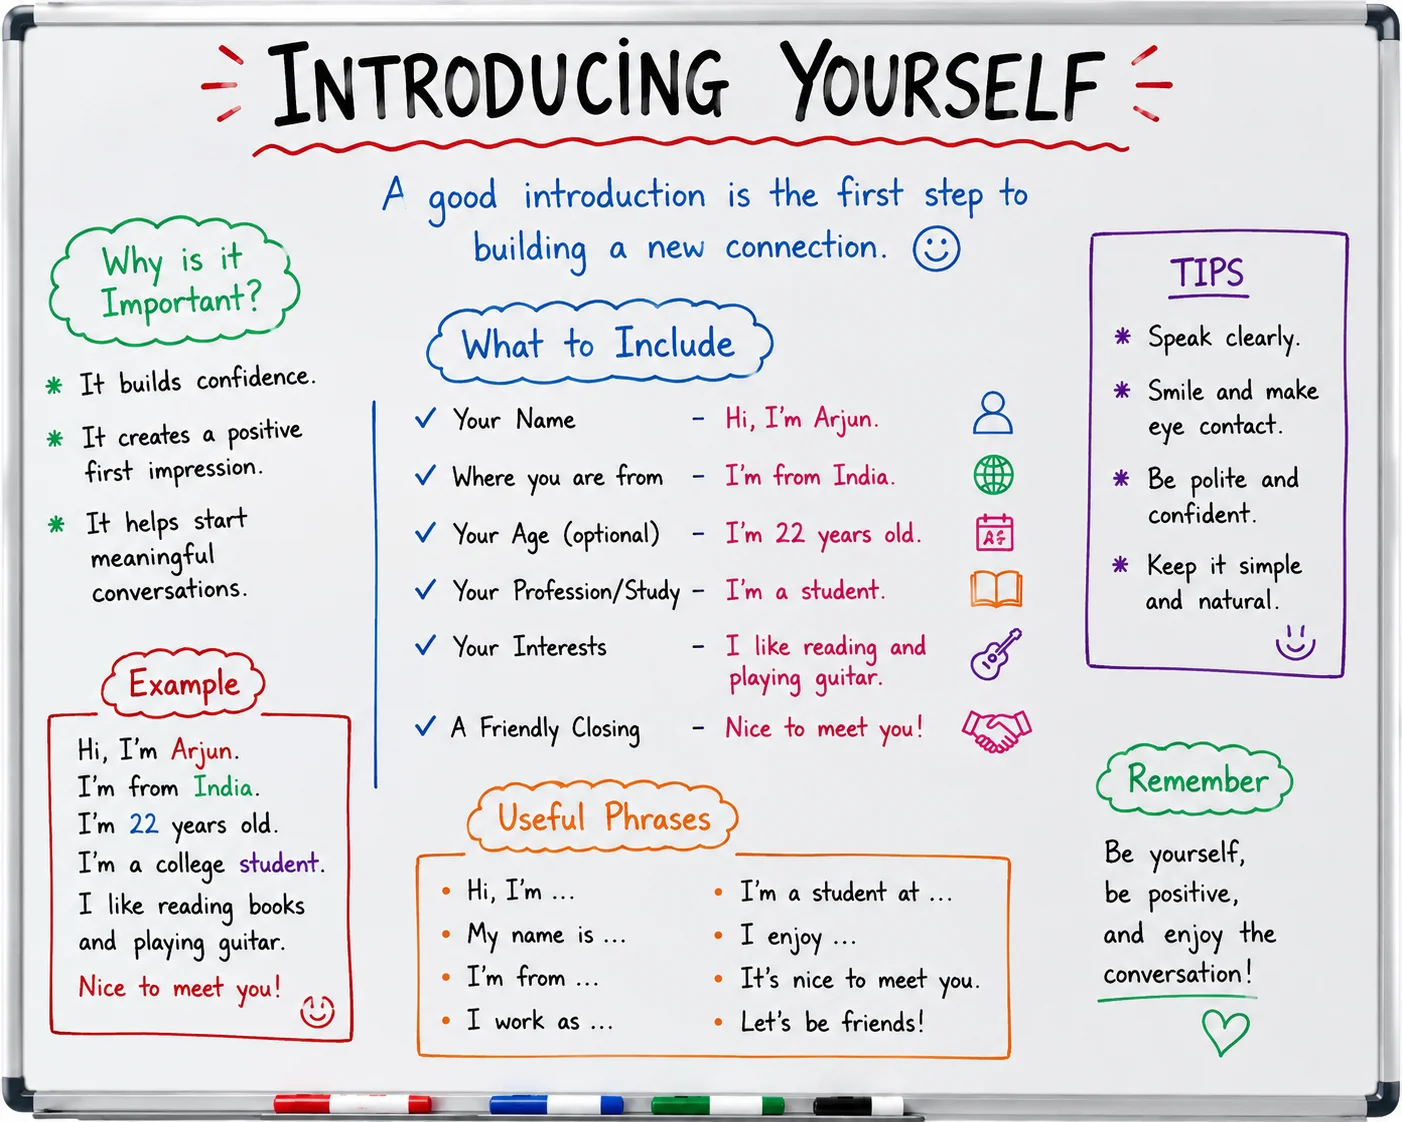 INTRODUCING YOURSELF
A good introduction is the first step to
building a new connection.
Why is it
Important?
It builds confidence.
It creates a positive
first impression.
It helps start
meaningful
conversations.
Example
Hi, I'm Arjun.
I'm from India.
I'm 22 years old.
I'm a college student.
I like reading books
and playing guitar.
Nice to meet you!
What to Include
✓ Your Name – Hi, I'm Arjun.
✓ Where you are from – I'm from India.
✓ Your Age (optional) – I'm 22 years old.
✓ Your Profession/Study – I'm a student.
✓ Your Interests – I like reading and
playing guitar.
✓ A Friendly Closing – Nice to meet you!
Useful Phrases
• Hi, I'm ...
• My name is ...
• I'm from ...
• I work as ...
• I'm a student at ...
• I enjoy ...
• It's nice to meet you.
• Let's be friends!
TIPS
Speak clearly.
Smile and make
eye contact.
Be polite and
confident.
Keep it simple
and natural.
Remember
Be yourself,
be positive,
and enjoy the
conversation!